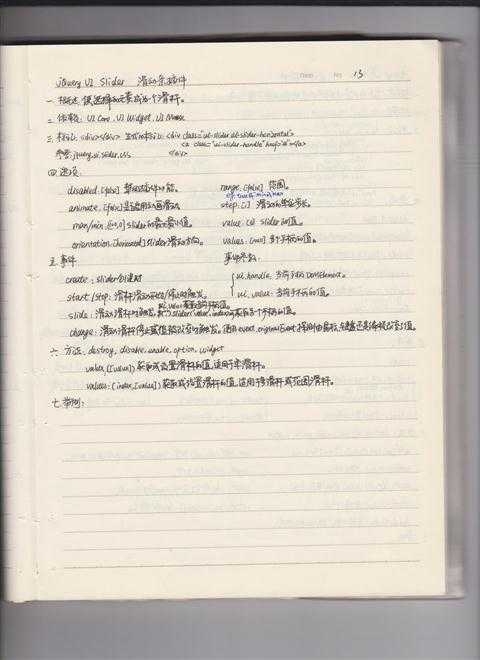 NO 13
jQuery UI Slider 滑动条插件
一. 概述: 使选择的元素成为一个滑杆。
二. 依赖: UI Core, UI Widget, UI Mouse
三. 标记: <div></div> 生成的标记: <div class="ui-slider ui-slider-horizontal">
<a class="ui-slider-handle" href="#"></a>
</div>
参考: jquery.ui.slider.css
四. 选项
disabled: [false] 禁用插件功能。 range: [false] 范围。
or, true或 min或max
animate: [false] 是否启用动画滑动。 step: [1] 滑动的单位步长。
max/min: [100,0] slider的最大最小值。 value: [0] slider的值。
orientation: [horizontal] slider滑动方向。 values: [null] 多个手柄的值。
五. 事件 事件参数:
create: slider创建时 ui.handle: 当前手柄 DOMElement。
start/stop: 滑杆滑动开始/停止时触发。 ui.value: 当前手柄的值。
ui.value获取当前手柄的值。
slide: 滑动滑杆时触发, 获取各个手柄的值。
change: 滑动滑杆停止或值被改变时触发。使用event.originalEvent
六. 方法: destroy, disable, enable, option, widget
value([value]) 获取或设置滑杆的值, 适用于单滑杆。
values: (index, [value]) 获取或设置滑杆的值, 适用于多滑杆或范围滑杆。
七. 举例: